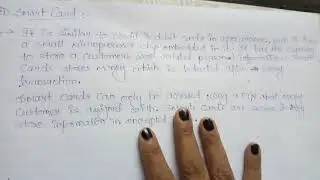 Smart Card :
→ It is similar to credit & debit cards in appearance, but it has
a small microprocessor chip embedded in it. It has the capacity
to store a customers and related personal information. Smart
cards stores money which is reduced upon every
transaction.
Smart cards can only be accessed using a PIN that every
customer is assigned with. Smart cards are secure & they
store information in encrypted